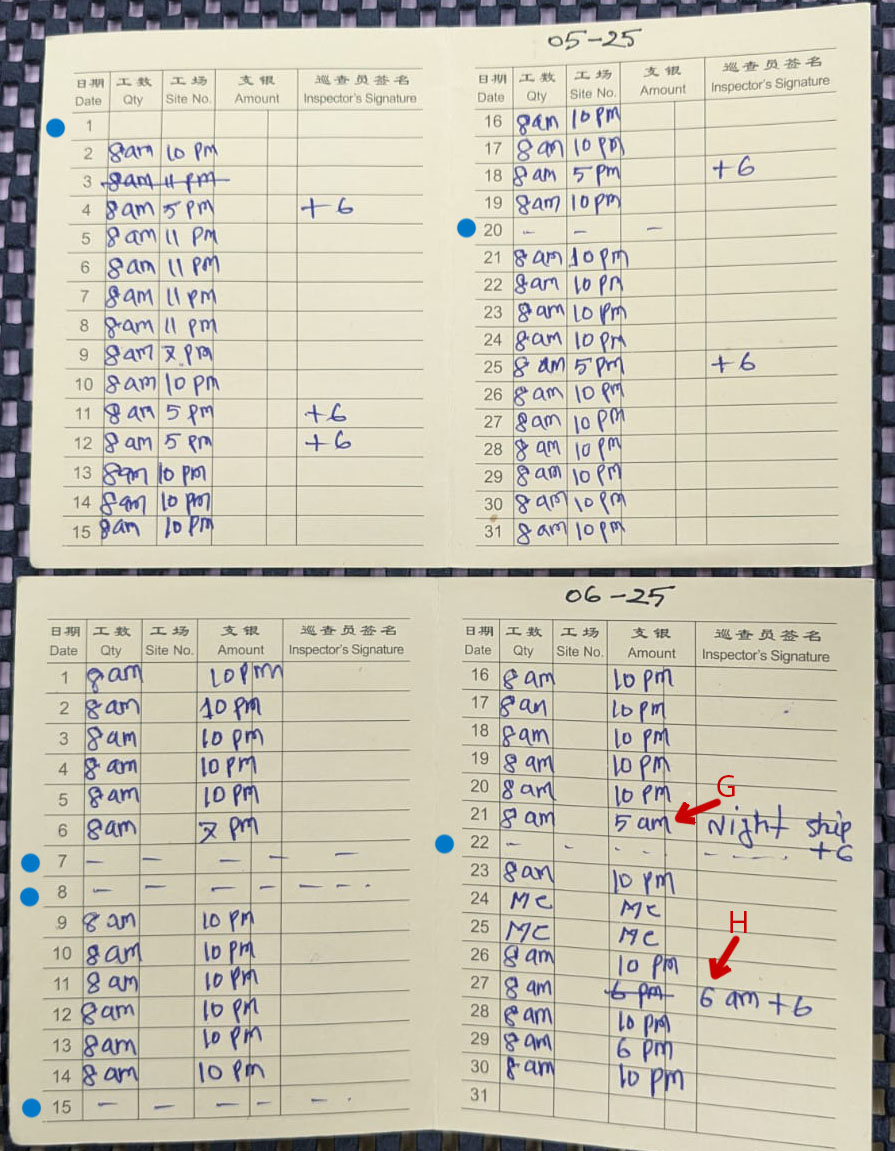 05-25
日期 工数 工场 支银 巡查员签名
Date Qty Site No. Amount Inspector's Signature
1
2 8am 10 pm
3 8am 11 pm
4 8am 5 pm +6
5 8am 11 pm
6 8am 11 pm
7 8am 11 pm
8 8am 11 pm
9 8am 7 pm
10 8am 10 pm
11 8am 5 pm +6
12 8am 5 pm +6
13 8am 10 pm
14 8am 10 pm
15 8am 10 pm
日期 工数 工场 支银 巡查员签名
Date Qty Site No. Amount Inspector's Signature
16 8am 10 pm
17 8am 10 pm
18 8am 5 pm +6
19 8am 10 pm
20 - - -
21 8am 10 pm
22 8am 10 pm
23 8am 10 pm
24 8am 10 pm
25 8am 5 pm +6
26 8am 10 pm
27 8am 10 pm
28 8am 10 pm
29 8am 10 pm
30 8am 10 pm
31 8am 10 pm
06-25
日期 工数 工场 支银 巡查员签名
Date Qty Site No. Amount Inspector's Signature
1 8am 10 pm
2 8am 10 pm
3 8am 10 pm
4 8am 10 pm
5 8am 10 pm
6 8am 7 pm
7 - - - - -
8 - - - - - - -
9 8am 10 pm
10 8am 10 pm
11 8am 10 pm
12 8am 10 pm
13 8am 10 pm
14 8am 10 pm
15 - - - - - .
日期 工数 工场 支银 巡查员签名
Date Qty Site No. Amount Inspector's Signature
16 8am 10 pm
17 8am 10 pm
18 8am 10 pm
19 8am 10 pm
20 8am 10 pm
G
21 8am 5 am Night ship
22 - - - - - - - +6
23 8am 10 pm
24 MC MC
25 MC MC
H
26 8am 10 pm
27 8am 6 pm 6 am +6
28 8am 10 pm
29 8am 6 pm
30 8am 10 pm
31